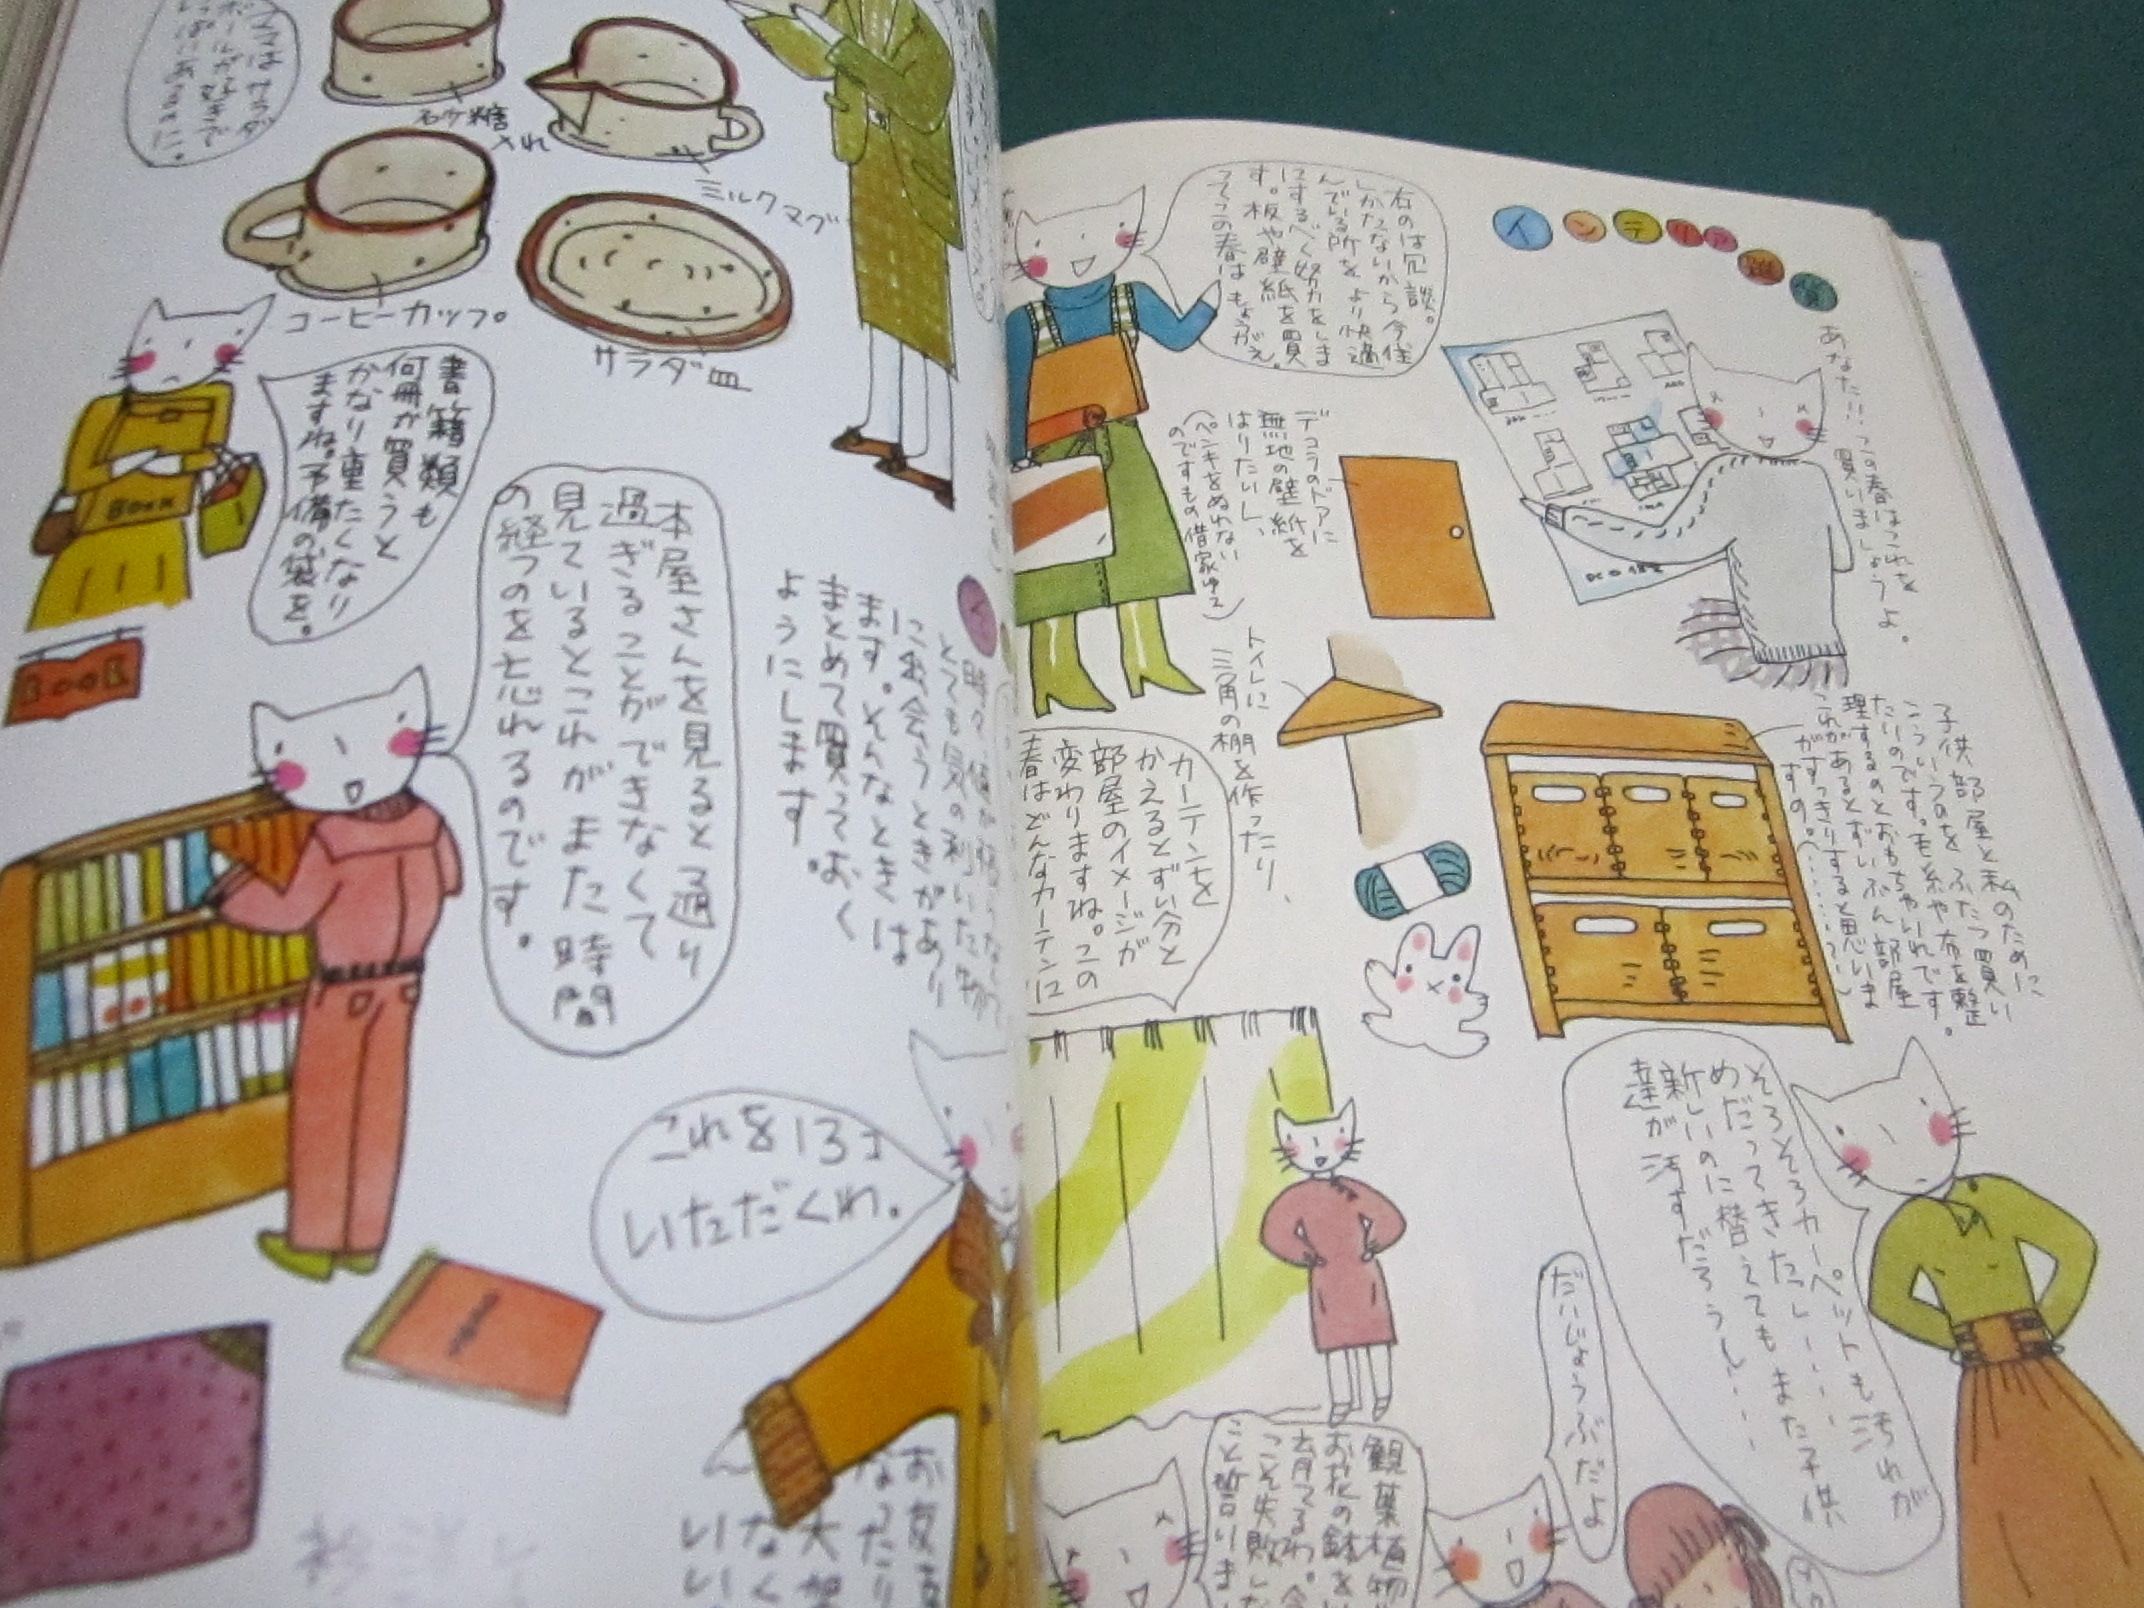 インテリア雑貨
あなた!!この春はこれを
買いましょうよ。
右のは冗談。
しかたないから今住
んでいる所をより快適
にするべく努力をしま
す。板や壁紙を買
ってこの春はもようがえ。
デコラのドアに
無地の壁紙を
はりたいし、
(ペンキをぬれない
のですもの借家ゆえ)
トイレに
三角の棚を作ったり、
子供部屋と私のために、
こういうのをふたつ買い
たいのです。毛糸や布を整
理するのとおもちゃいれです。
これがあるとずいぶん部屋
がすっきりすると思いま
すの。
カーテンを
かえるとずい分と
部屋のイメージが
変わりますね。この
春はどんなカーテンに
そろそろカーペットも汚れが
めだってきたっし
新しいのに替えても また子供
達が汚すだろうし
だいじょうぶだよ
観葉植物
お花の鉢を
育てるわ。今
こそ失敗しな
こと誓いま
ミルクマグ
砂糖
入れ
コーヒーカップ。
サラダ皿
書籍類も
何冊か買うと
かなり重たくなり
ますね。予備の袋を。
BOOK
BOOK
本屋さんを見ると通り
過ぎることができなくて
見ているとこれがまた時間
の経つのを忘れるのです。
とても気の利いた物
に出会うときがあり
ます。そんなときは
まとめて買っておく
ようにします。
これを13コ
いただくわ。